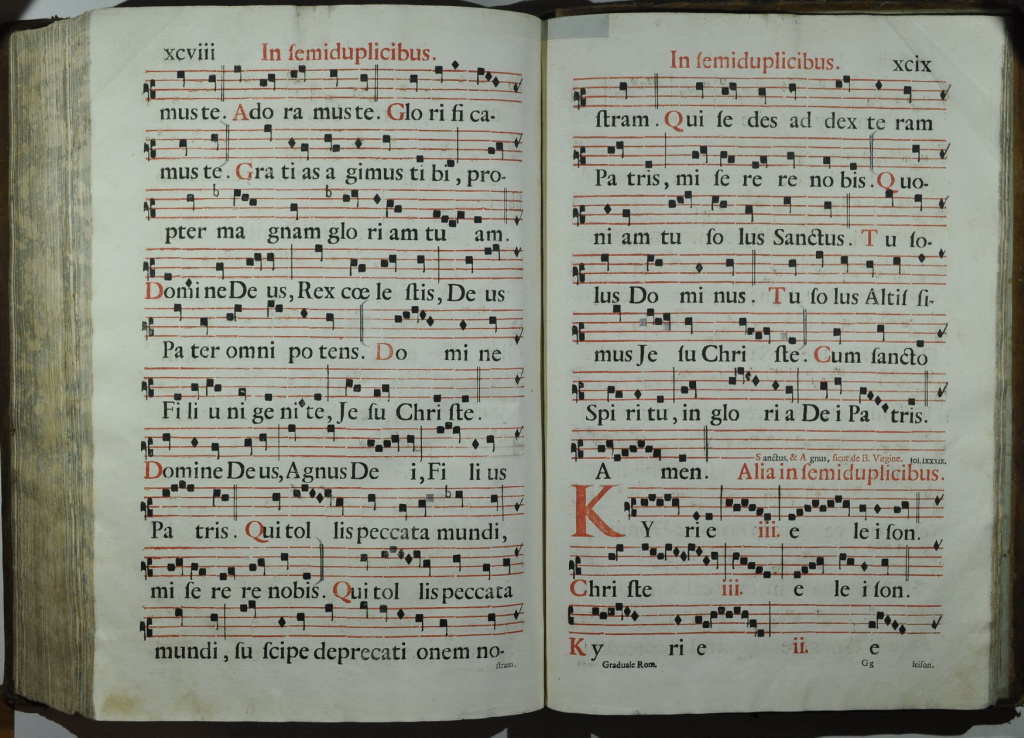 xcviii In ſemiduplicibus.
mus te. Ado ra mus te. Glo ri fi ca-
mus te. Gra ti as a gimus ti bi, pro-
pter ma gnam glo ri am tu am.
Domine De us, Rex cœ le ſtis, De us
Pa ter omni po tens. Do mi ne
Fi li u ni ge ni te, Je ſu Chri ſte.
Domine De us, Agnus De i, Fi li us
Pa tris. Qui tol lis peccata mundi,
mi ſe re re nobis. Qui tol lis peccata
mundi, ſu ſcipe deprecati onem no-
ſtram.
In ſemiduplicibus. xcix
ſtram. Qui ſe des ad dex te ram
Pa tris, mi ſe re re no bis. Quo-
ni am tu ſo lus Sanctus. T u ſo-
lus Do mi nus. Tu ſo lus Altiſ ſi-
mus Je ſu Chri ſte. Cum ſancto
Spi ri tu, in glo ri a De i Pa tris.
Sanctus, & Agnus, ſicut de B. Virgine. fol. lxxxix.
A men. Alia in ſemiduplicibus.
KY ri e iii. e le i ſon.
Chri ſte iii. e le i ſon.
Ky ri e ii. e
Graduale Rom. Gg leiſon.